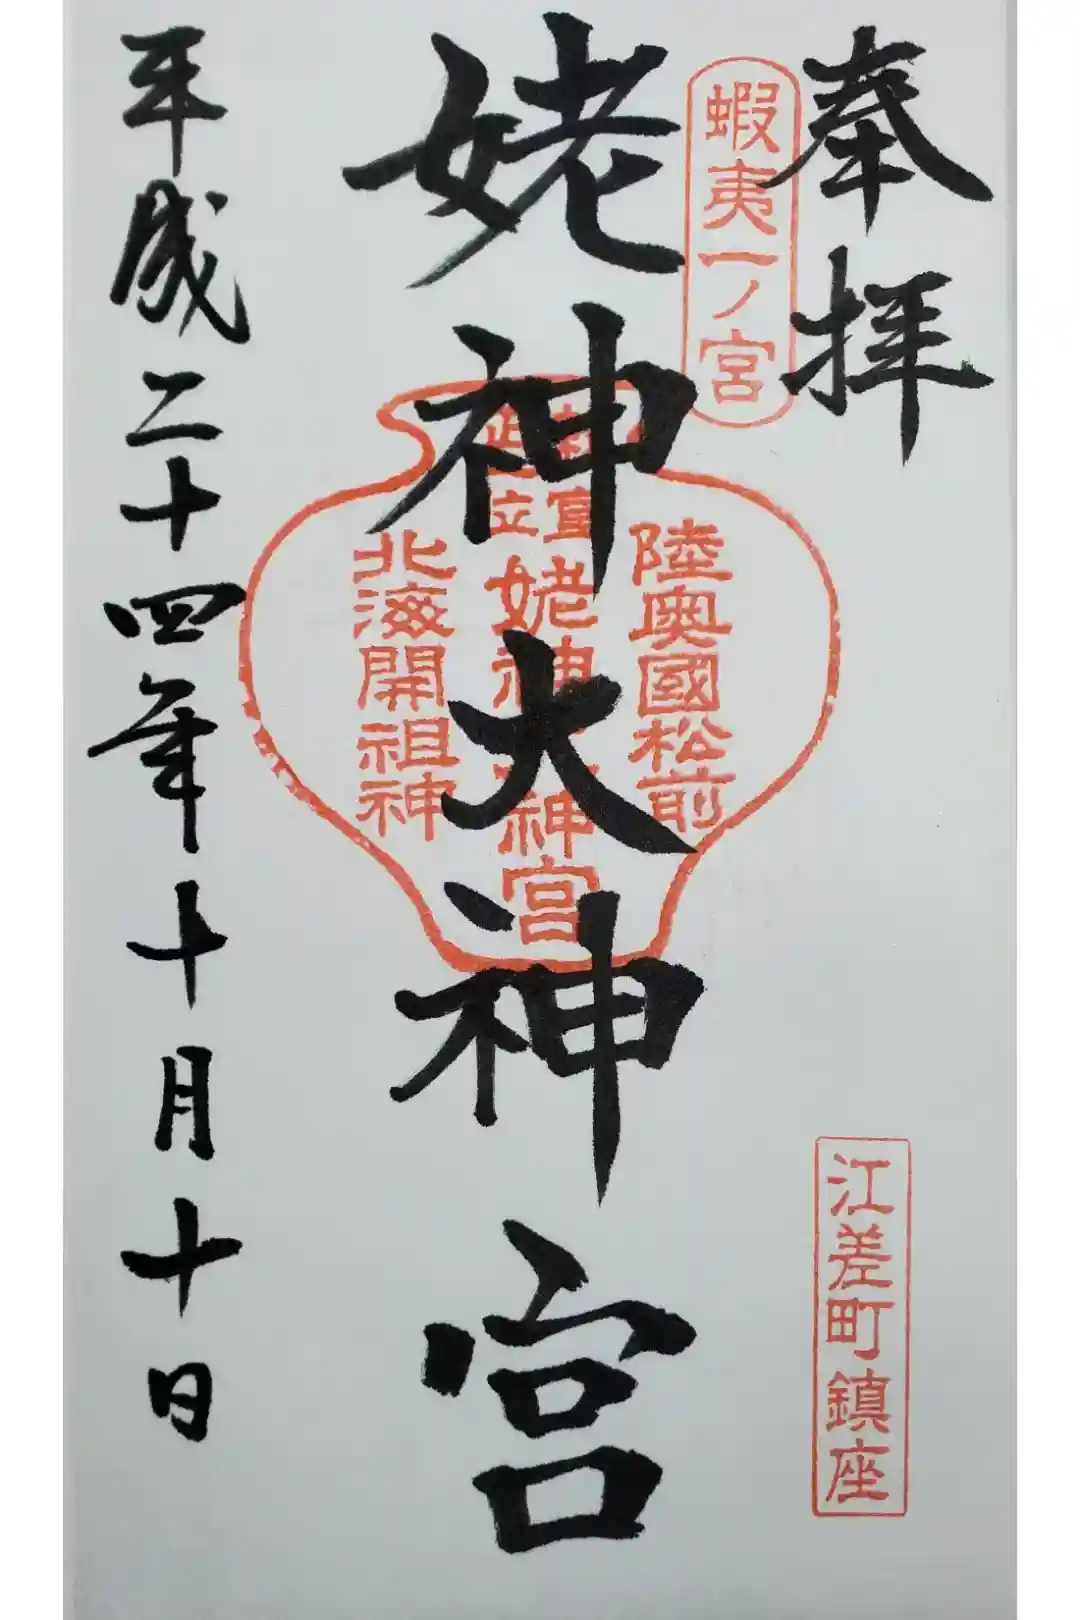 奉拝
蝦夷一ノ宮
江差町鎮座
姥神大神宮
陸奥國松前
姥神大神宮
北海開祖神
平成二十四年十月十日